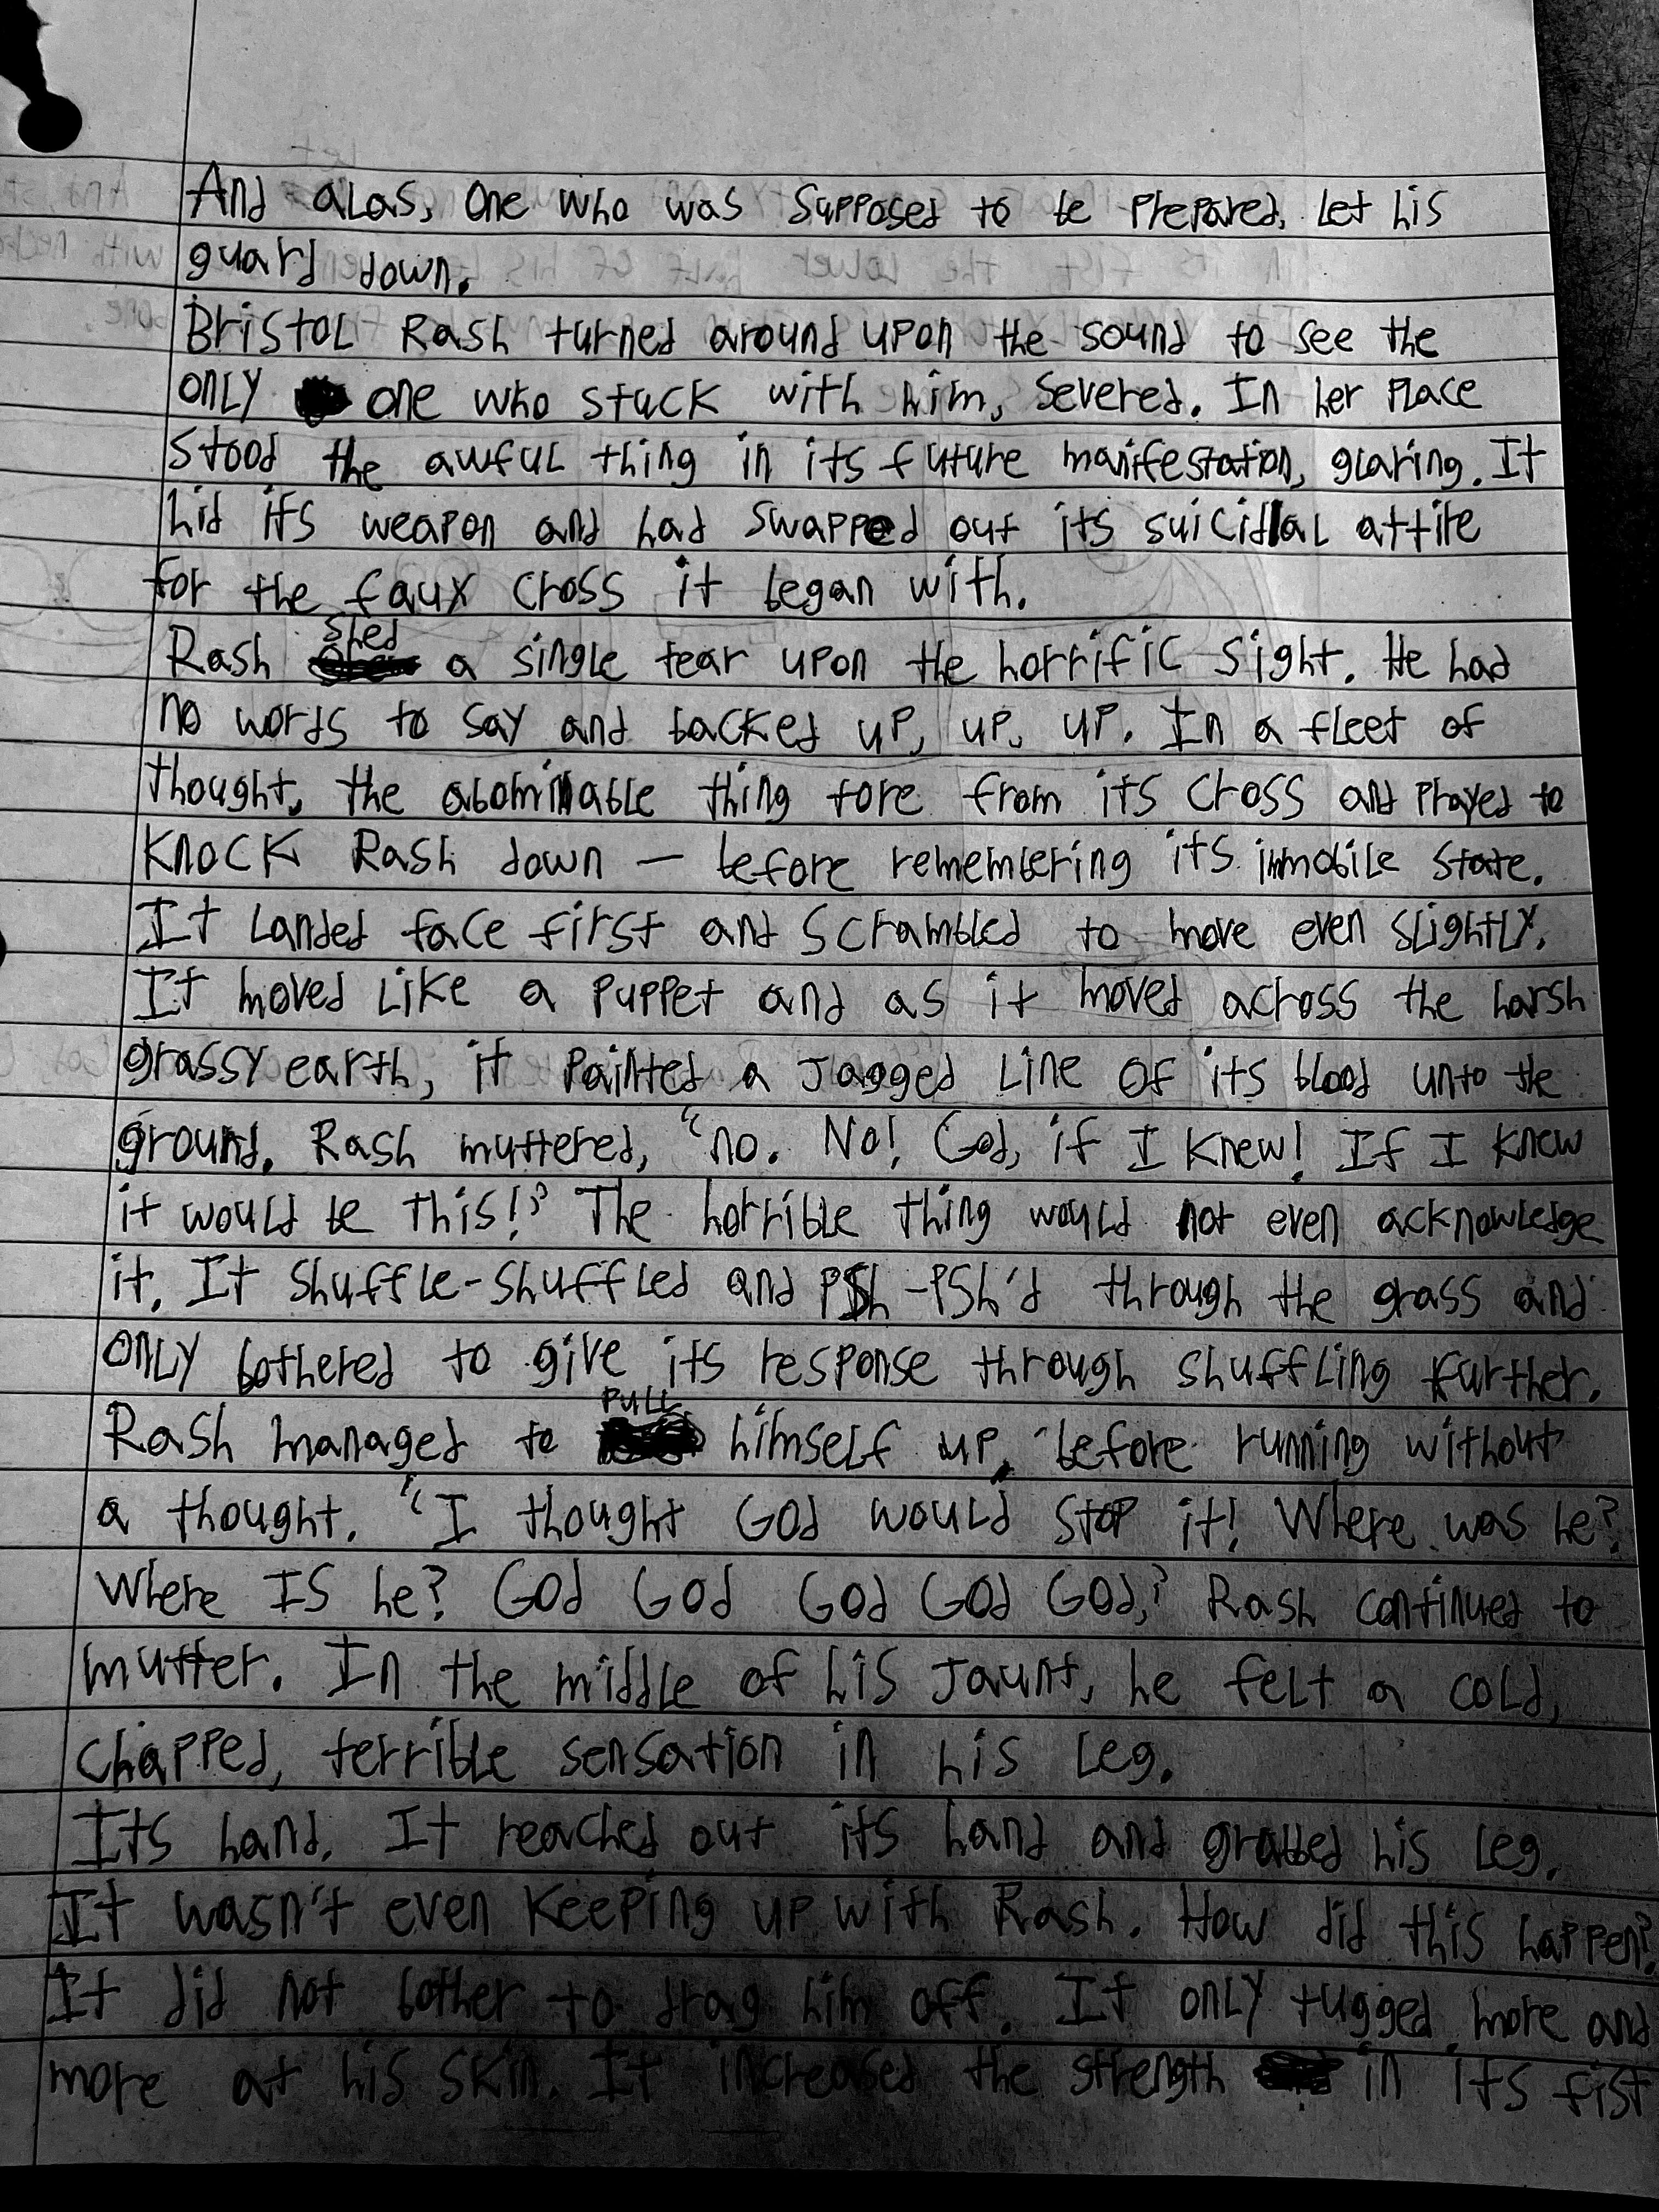 And alas, one who was supposed to be prepared, let his
guard down.
Bristol Rash turned around upon the sound to see the
only one who stuck with him, severed. In her place
stood the awful thing in its future manifestation, glaring. It
hid its weapon and had swapped out its suicidal attire
for the faux cross it began with.
Rash shed a single tear upon the horrific sight. He had
no words to say and backed up, up, up. In a fleet of
thought, the abominable thing tore from its cross and prayed to
knock Rash down — before remembering its immobile state.
It landed face first and scrambled to move even slightly.
It moved like a puppet and as it moved across the harsh
grassy earth, it painted a jagged line of its blood unto the
ground. Rash muttered, "no. No! God, if I knew! If I knew
it would be this!" The horrible thing would not even acknowledge
it. It shuffle-shuffled and psh-psh'd through the grass and
only bothered to give its response through shuffling further.
Rash managed to pull himself up, before running without
a thought. "I thought God would stop it! Where was he?
Where IS he? God God God God God," Rash continued to
mutter. In the middle of his jaunt, he felt a cold,
chapped, terrible sensation in his leg.
Its hand. It reached out its hand and grabbed his leg.
It wasn't even keeping up with Rash. How did this happen?
It did not bother to drag him off. It only tugged more and
more at his skin. It increased the strength in its fist